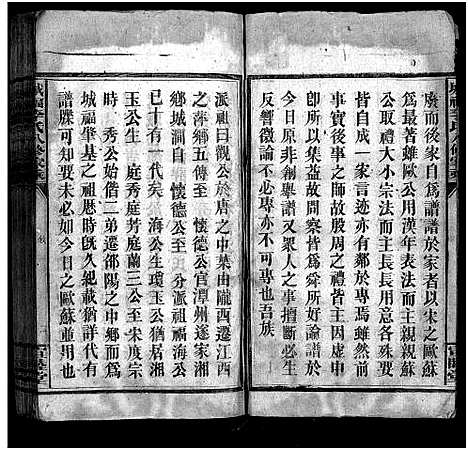 廢而後家自爲譜譜於家者以宋之歐蘇
爲最著雖歐公用漢年表法而主親親蘇
公取禮大小宗法而主長長用意各殊要
皆自成一家言渉亦有鄰於專焉雖然前
事實後事之師故殷周之禮皆有因虞中
卽所以集葢故與爲舜所好論譜以
衍享原非創舉譜又衆人之事擅斷必生
反響徵論亦專亦不可專也吾族
派祖曰觀公於唐之中葉由隴西遷江西
之萍鄉五傳至 懷德公官潭州遂家湘
鄉城澗自 懷德公至 分派祖福海公
已十有一代矣 海公生瓊玉公猶居湘
玉公生 庭秀庭芳庭蘭三公至宋度宗
時 秀公始偕二弟遷邵陽之中鄉而爲
城福肇基之祖歴時旣久親載猶詳代有
譜牒可知要未必如今日之歐蘇並用也